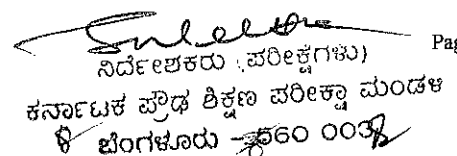 Pag
ನಿರ್ದೇಶಕರು (ಪರೀಕ್ಷೆಗಳು)
ಕರ್ನಾಟಕ ಪ್ರೌಢ ಶಿಕ್ಷಣ ಪರೀಕ್ಷಾ ಮಂಡಳಿ
ಬೆಂಗಳೂರು - 560 003